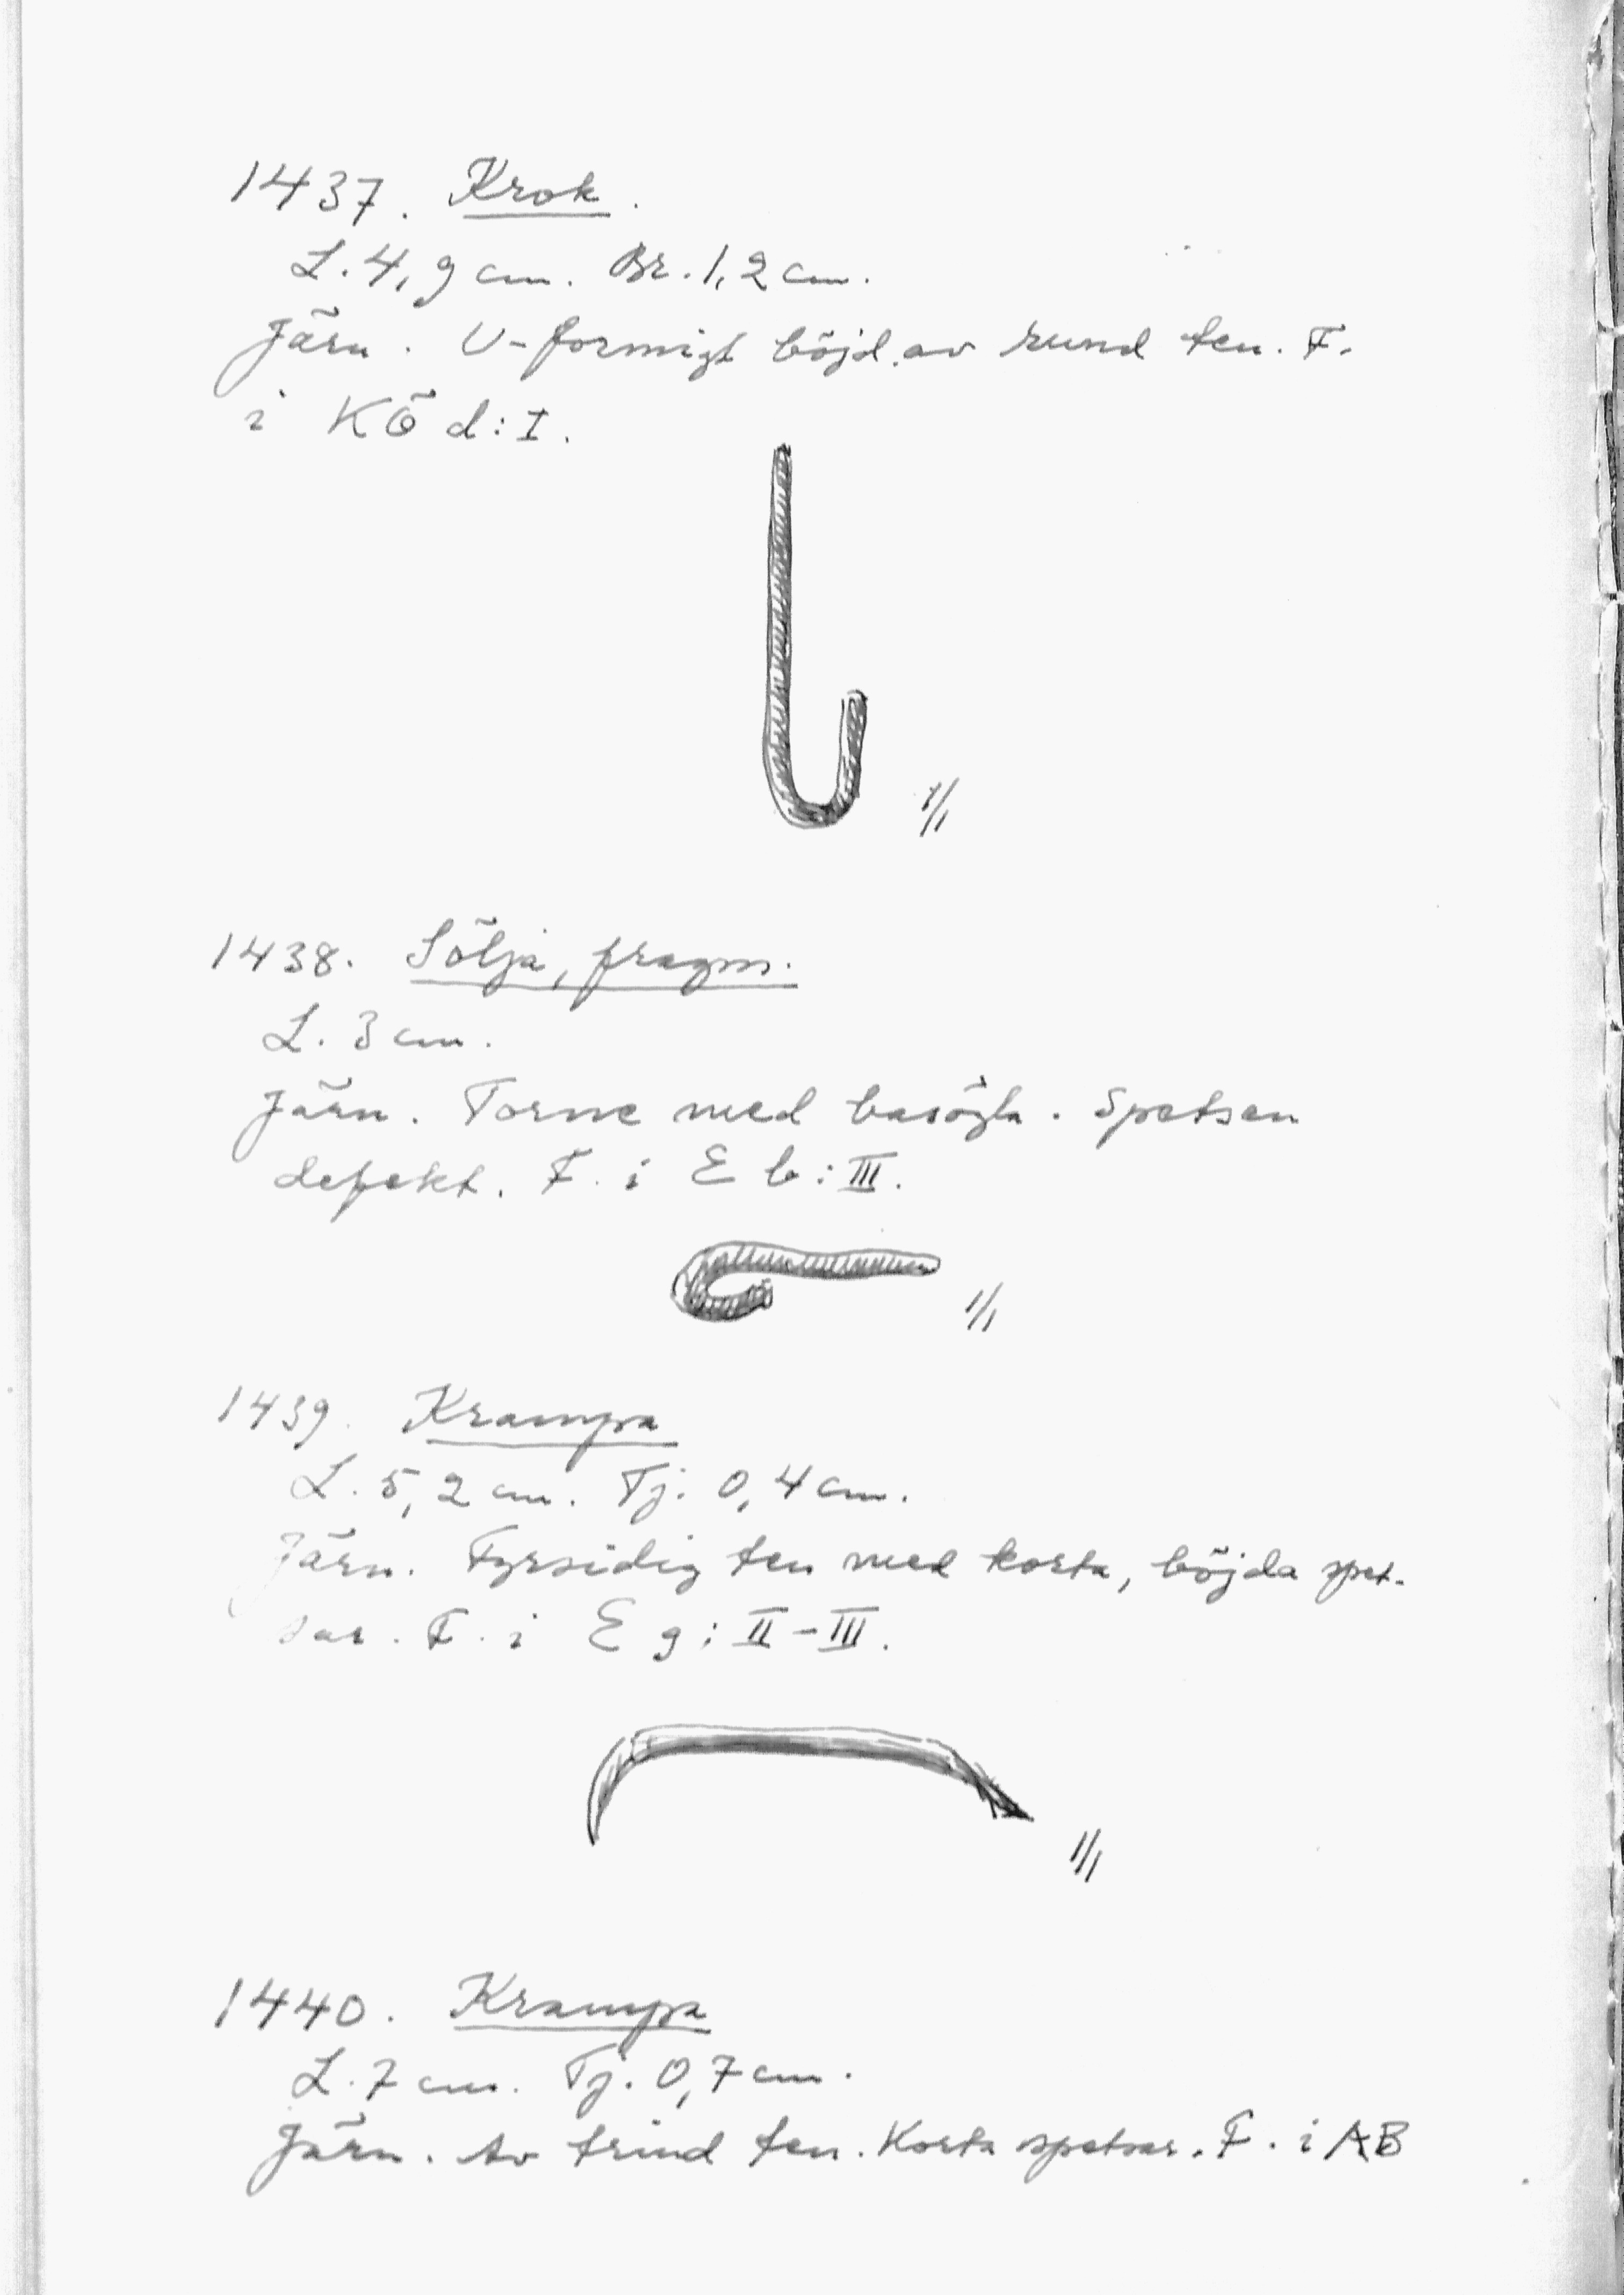 1437. Krok.
L. 4,9 cm. Br. 1,2 cm.
Järn. U-formigt böjd av rund ten. F.
i KÖ d:I.
1/1
1438. Sölja, fragm.
L. 3 cm.
Järn. Torne med basögla. Spetsen
defekt. F. i E b:III.
1/1
1439. Krampa
L. 5,2 cm. Tj. 0,4 cm.
Järn. Fyrsidig ten med korta, böjda spet-
sar. F. i E g:II-III.
1/1
1440. Krampa
L. 7 cm. Tj. 0,7 cm.
Järn. Av trind ten. Korta spetsar. F. i AB